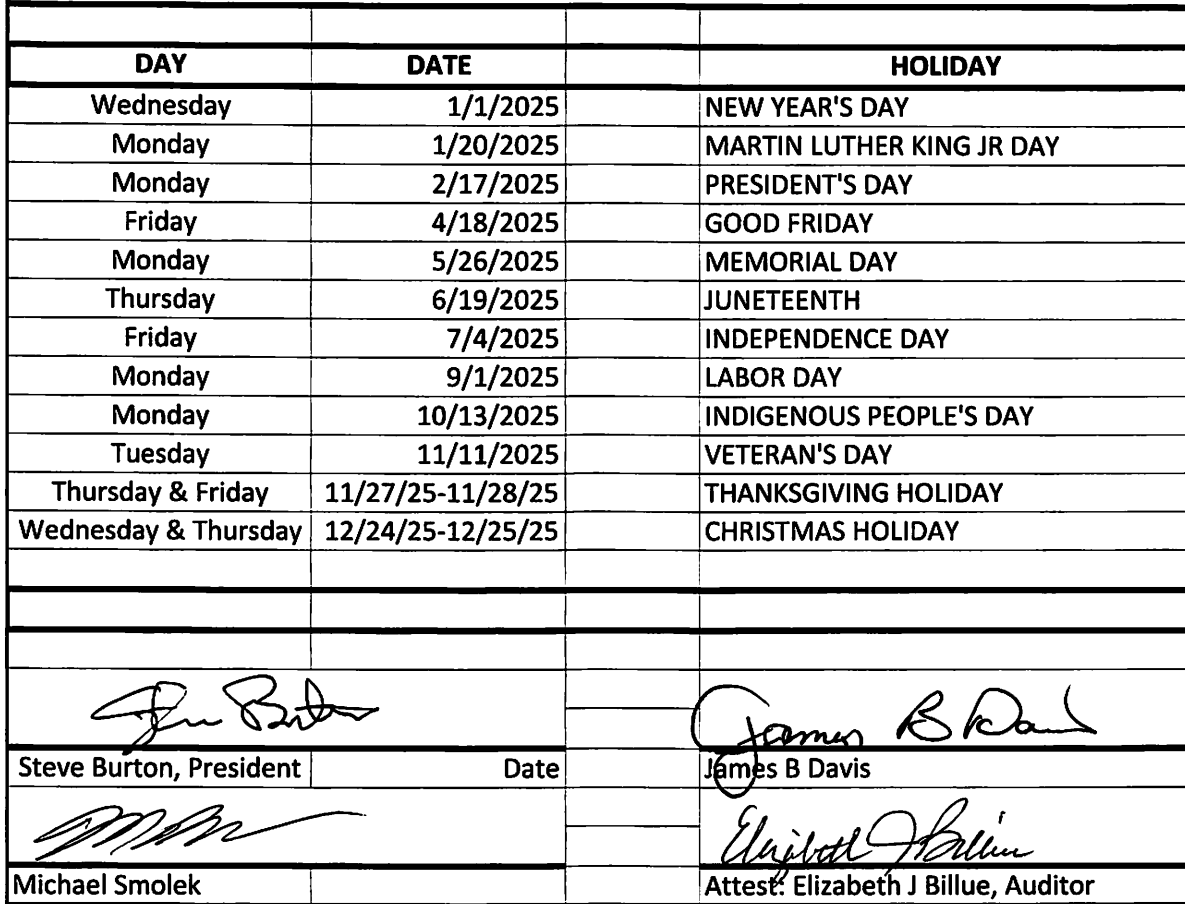 DAY DATE HOLIDAY
Wednesday 1/1/2025 NEW YEAR'S DAY
Monday 1/20/2025 MARTIN LUTHER KING JR DAY
Monday 2/17/2025 PRESIDENT'S DAY
Friday 4/18/2025 GOOD FRIDAY
Monday 5/26/2025 MEMORIAL DAY
Thursday 6/19/2025 JUNETEENTH
Friday 7/4/2025 INDEPENDENCE DAY
Monday 9/1/2025 LABOR DAY
Monday 10/13/2025 INDIGENOUS PEOPLE'S DAY
Tuesday 11/11/2025 VETERAN'S DAY
Thursday & Friday 11/27/25-11/28/25 THANKSGIVING HOLIDAY
Wednesday & Thursday 12/24/25-12/25/25 CHRISTMAS HOLIDAY
Steve Burton James B Davis
Steve Burton, President Date James B Davis
Elizabeth J Billue
Michael Smolek Attest: Elizabeth J Billue, Auditor